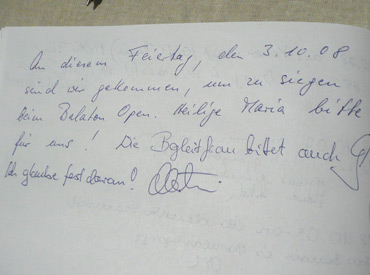 An diesem Feiertag, den 3.10.08
sind wir gekommen, um zu siegen
beim Balaton Open. Heilige Maria bitte
für uns! Die Begleitfrau bittet auch
Ich glaube fest daran!